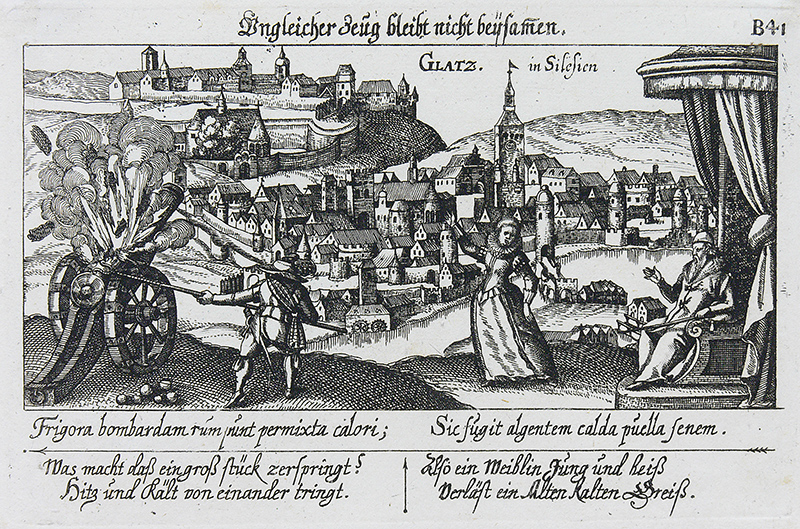 Ungleicher Zeug bleibt nicht beÿsam̄en.
B41
GLATZ. in Silesien
Frigora bombardam rumpunt permixta calori;
Sic fugit algentem calda puella senem.
Was macht daß ein groß stück zerspringt?
Hitz und Kält von einander tringt.
Also ein Weiblin Jung und heiß
Verläst ein Alten Kalten Greiß.